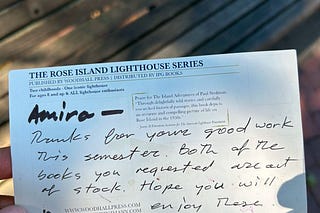 THE ROSE ISLAND LIGHTHOUSE SERIES
PUBLISHED BY WOODHALL PRESS | DISTRIBUTED BY IPG BOOKS
Two childhoods - One iconic lighthouse
For ages 8 and up & ALL lighthouse enthusiasts
Praise for The Island Adventures of Paul Stedman
"Through delightfully told stories and carefully
researched historical passages, this book depicts
an accurate and compelling picture of life on
Rose Island in the 1930s."
Amira —
Thanks for your good work
this semester. Both of the
books you requested are out
of stock. Hope you will
enjoy these.
WWW.WOODHALLPRESS.COM